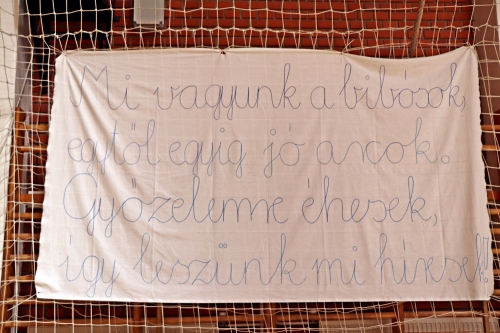 Mi vagyunk a bibósok,
egytől egyig jó arcok.
Győzelemre éhesek,
így leszünk mi híresek!!